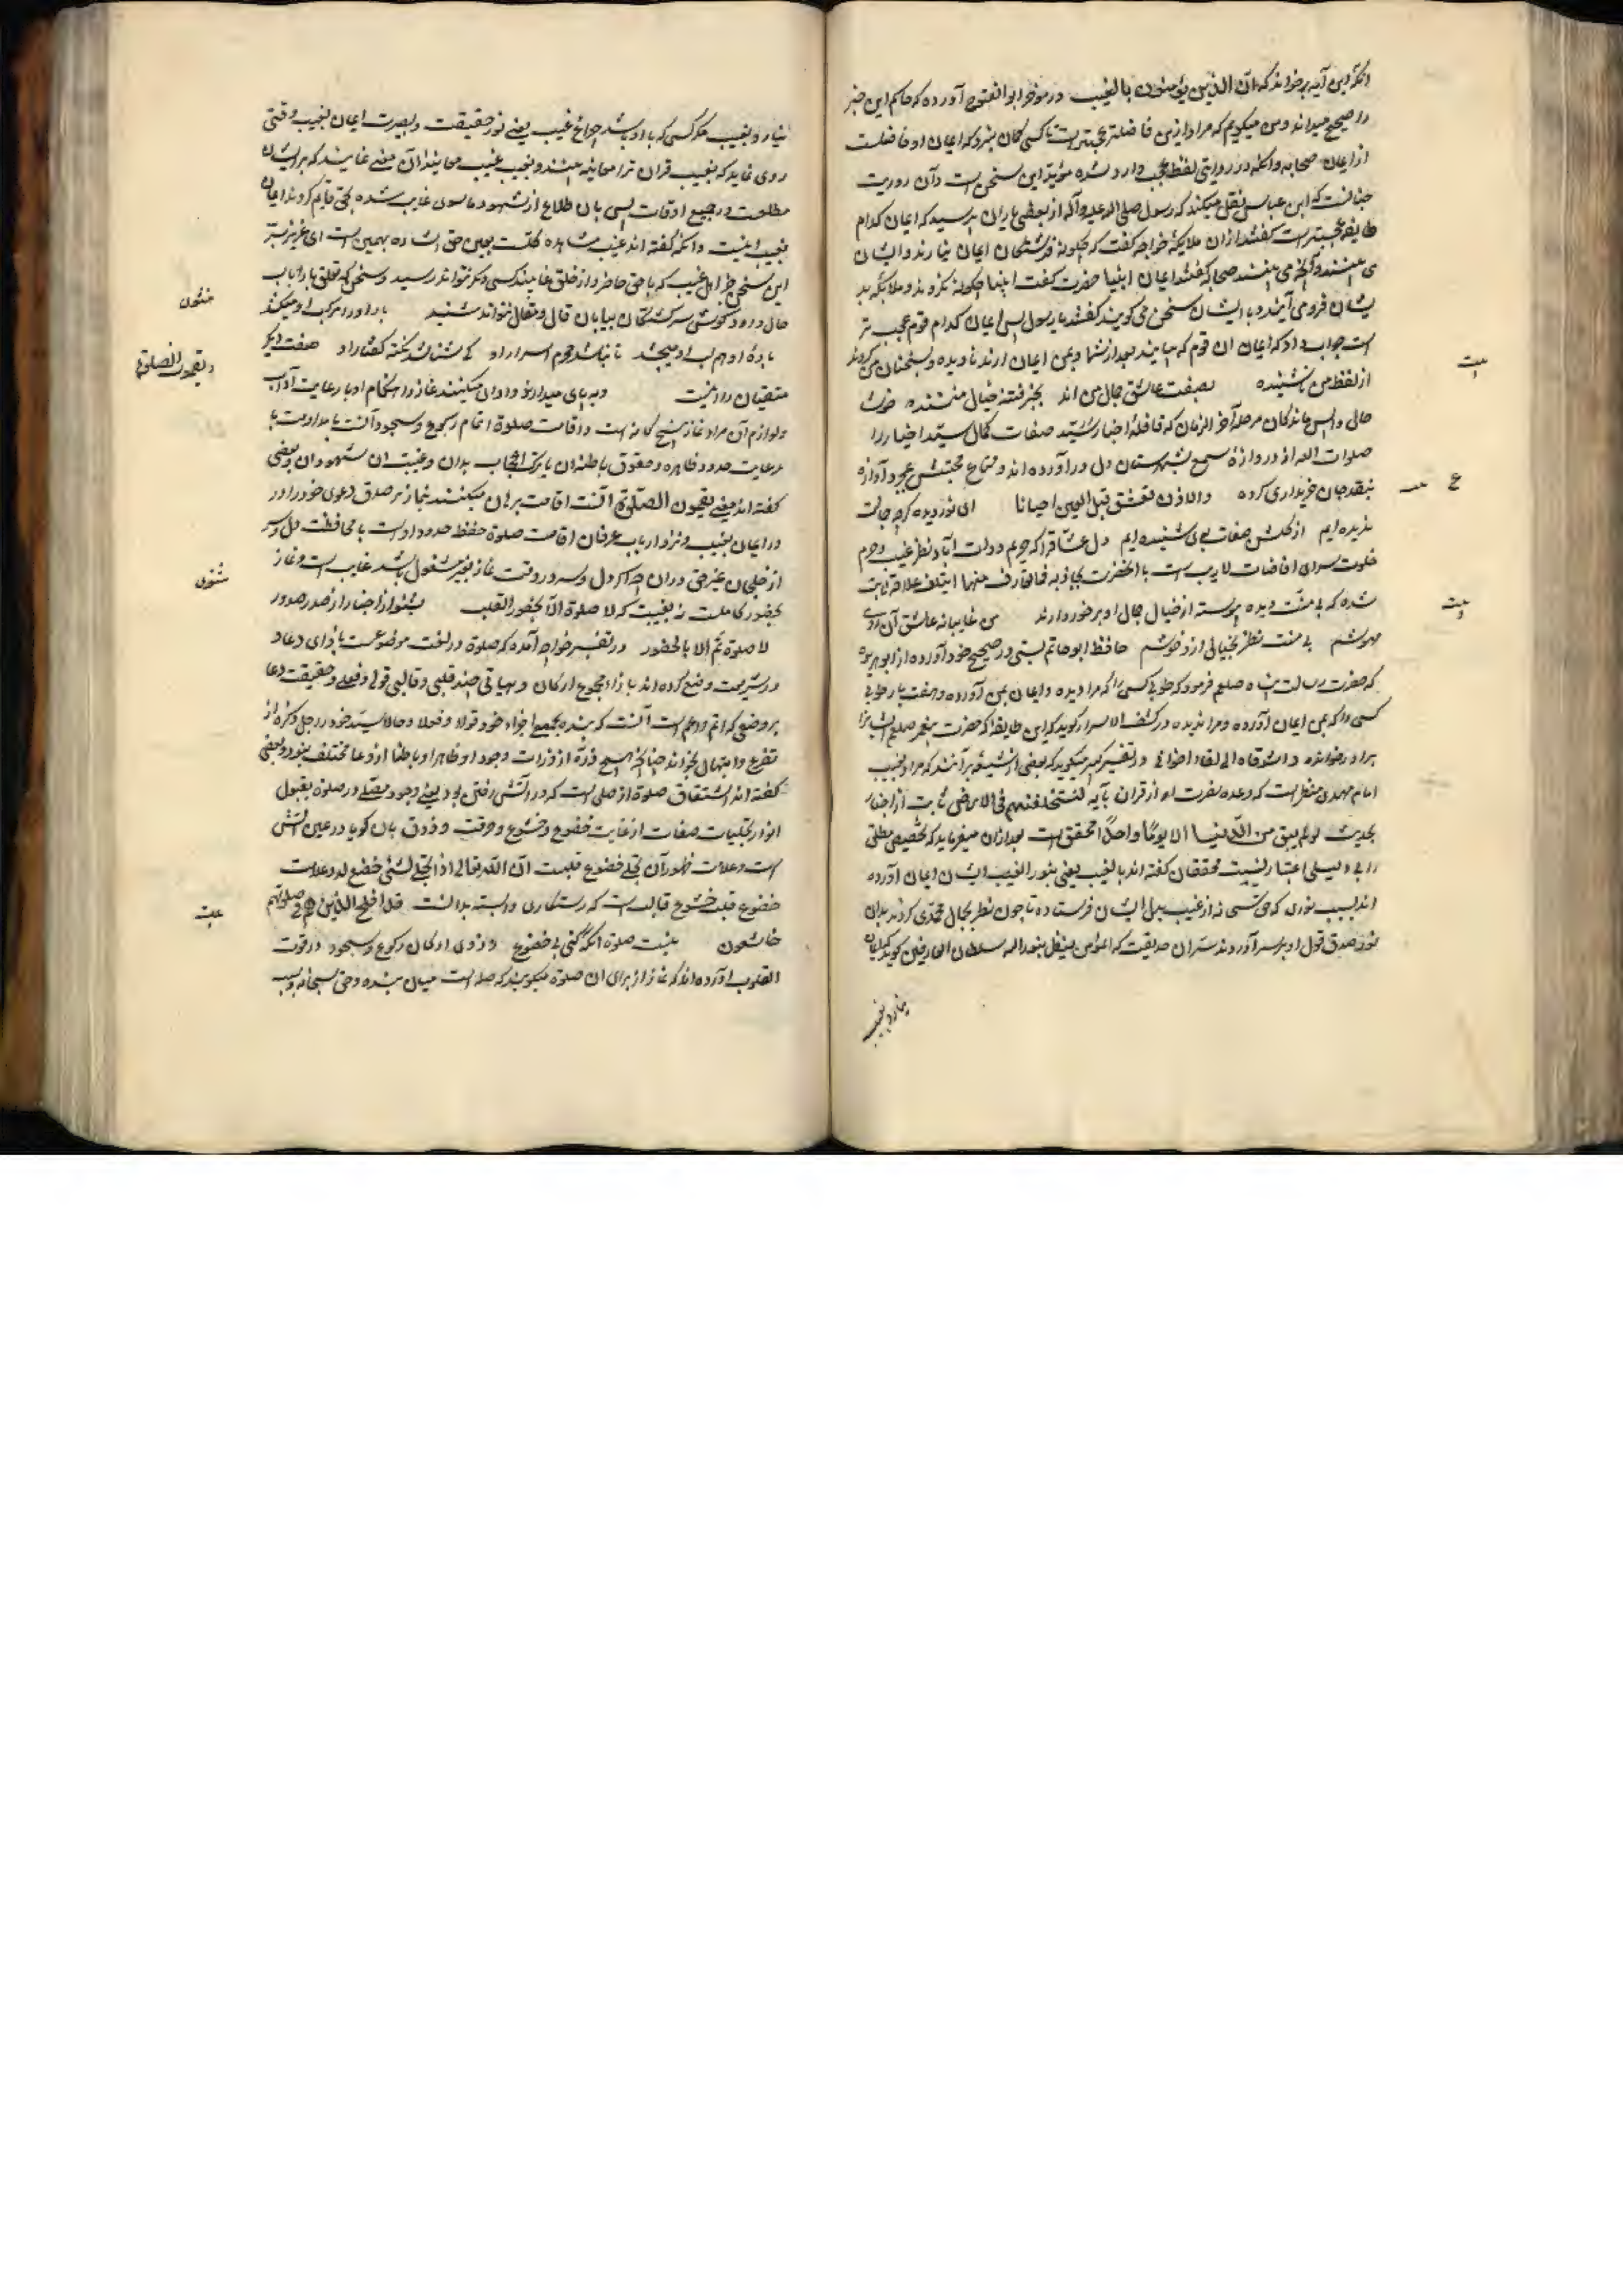 آنکه این آیه برخواند که انّ الذین یؤمنون بالغیب در موخر ابوالفتوح آورده که حاکم این خبر
را صحیح میداند و من میکویم که مراد ازین فاضلتر عجبتر است تا کسی کمان نبرد که ایمان او فاضلست
از ایمان صحابه و آنکه در روایتی لفظ عجب وارد شده مؤید این سخن است و آن روایت
چنانست که ابن عباس نقل میکند که رسول صلی الله علیه و آله از بعضی یاران پرسید که ایمان کدام
طایفه عجبتر است کفتند ازان ملایکه خواجه کفت که چکونه فرشتکان ایمان نیارند و ایشان
می بینند و آنچه می بینند صحابه کفتند ایمان انبیا حضرت کفت انبیا چکونه نکروند و ملایکه بر
یشان فرومی آیند و با ایشان سخن می کویند کفتند یا رسول الله پس ایمان کدام قوم عجب تر
است جواب داد که ایمان آن قوم که می آیند بعد از شما و بمن ایمان آرند نادیده و بسخنان من کروند
از لفظ من ناشنیده بصفت عاشق جمال من اند بخبر فتنهٔ خیال منند
حال واپس ماندکان مرحلهٔ آخر الزمان که قافلهٔ اخبار سید صفات کمال سید اخیار را
صلوات الله از دروازهٔ سمع بشهرستان دل درآورده اند و متاع محبتش بمجرد آوازه
بنقد جان خریداری کرده والاذن تعشق قبل العین احیانا ای نور دیده کرچه جمالت
ندیده ایم از کلشن صفات بوی شنیده ایم دل عشاق را که حریم دولت آباد نظر غیب و حرم
خلوت سرای افاضات لاریب است با آنحضرت بجاذبه فما تعارف منها ائتلف علاقه ثابت
شده که بی منت دیده پیوسته از خیال جمال او برخوردارند من غایبانه عاشق آن روی
مهوشم بی منت نظر بخیالی ازو خوشم حافظ ابوحاتم بستی در صحیح خود آورده از ابوهریره
که حضرت رسالت پناه صلعم فرمود که طوبی کسی را که مرا دیده و ایمان بمن آورده و هفت بار طوبی
کسی را که بمن ایمان آورده و مرا ندیده در کشف الاسرار کوید که این طایفه اند که حضرت پیغمبر صلعم ایشانرا
برادر خوانده و اشوقاه الی لقاء اخوانی و در تفسیر کبیر میکوید که بعضی از شیعه برآنند که مراد بغیب
امام مهدی منتظر است که وعدهٔ نصرت او از قران بآیهٔ لنستخلفنهم فی الارض ثابت و از اخبار
بحدیث لو لم یبق من الدّنیا الا یومًا واحدًا محقق است بعد ازان میفرماید که تخصیص مطلق
را بی دلیلی اعتبار نیست محققان کفته اند بالغیب یعنی بنور الغیب ایشان ایمان آورده
اند بسبب نوری که حق تعالی از غیب بدل ایشان فرستاده تا چون نظر بجمال محمدی کردند بدان
نور صدق قول او بر سر آوردند سر آن حدیقت که المؤمن ینظر بنور الله سلطان العارفین کوید که ایمان
نیارد بغیب
بیت
ع
بیت
نیارد بغیب مکر کسی که با او باشد چراغ غیب یعنی نور حقیقت و بصیرت ایمان بغیب وقتی
روی نماید که بغیب قران ترا معاینه بینند و بغیب غیب معاینه از آن معنی غایبند که بر ایشان
مطلعست در جمیع اوقات پس بآن طلاع از شهود ماسوی غایب شده بحق قایم کردند ایمان
بغیب اینست و آنکه کفته اند غیب مشاهدهٔ کلست بعین حق اشاره بهمین است ای عزیز سر
این سخن جز اهل غیب که با حق حاضر و از خلق غایبند کسی دیکر نتواند رسید و سخنی که تعلق بارباب
حال دارد کوش سرکشتکان بیابان قال و مقال نتواند شنید باد او را مرکب او میکند
بادهٔ او هم لب او میچشد تا نباشد محرم اسرار او کی شناسد نکتهٔ کفتار او صفت دیکر
متقیان را اینست و بر پای میدارند و ادا میکنند نماز را و استحکام او با رعایت آداب
و لوازم آن مراد نماز پنج کانه است و اقامت صلوة اتمام رکوع و سجود آنست یا مداومت با
رعایت حدود ظاهره و حقوق باطنهٔ آن یا ترک اعجاب بدان و غیبت از شهود آن و بعضی
کفته اند معنی یقیمون الصلوة آنست اقامت برهان میکنند بنماز بر صدق دعوی خود را در
در ایمان بغیب و نزد ارباب عرفان اقامت صلوة حفظ حدود اوست با محافظت دل و سر
از خلجان غیر حق دران چه اکر دل و سر در وقت نماز بغیر مشغول باشد غایب است و نماز
بحضور کاملست نه بغیبت که لا صلوة الا بحضور القلب بشنو از اخبار از صدر صدور
لا صلوة تم الا بالحضور در تفسیر خواجه آمده که صلوة در لغت موضوعست بازای دعا و
در شریعت وضع کرده اند بازاء مجموع ارکان و هیاتی چند قلبی و قالبی قولی و فعلی و حقیقت دعا
بر وضعی که اتم و اعم است آنست که بنده بجمیع اجزاء خود قولا و فعلا و حالا سید خود را جل ذکره از
تضرع و ابتهال بخواند چنانکه هیچ ذرهٔ از ذرات وجود او ظاهرا و باطنا ازو عا مختلف نبود و بعضی
کفته اند اشتقاق صلوة از صلی است که در آتش رفتن بود یعنی وجود مصلی در صلوة بقبول
انوار تجلیات صفات از غایت خضوع و خشوع و وقت و ذوق بآن کویا در عین آتش
است و علامت ظهور آن تجلی خضوع قلبست انّ الله تعالی اذا تجلی لشئ خضع له و علامت
خضوع قلب خشوع قالب است که رستکاری وابسته بدانست قد افلح الذین هم فی صلوتهم
خاشعون نیست صلوة آنکه کنی بی خضوع دزدی ارکان رکوع و سجود در قوت
القلوب آورده اند که نماز از برای آن صلوة میکویند که صله است میان بنده و حق سبحانه و سبب
مثنوی
ویقیمون الصلوة
مثنوی
بیت